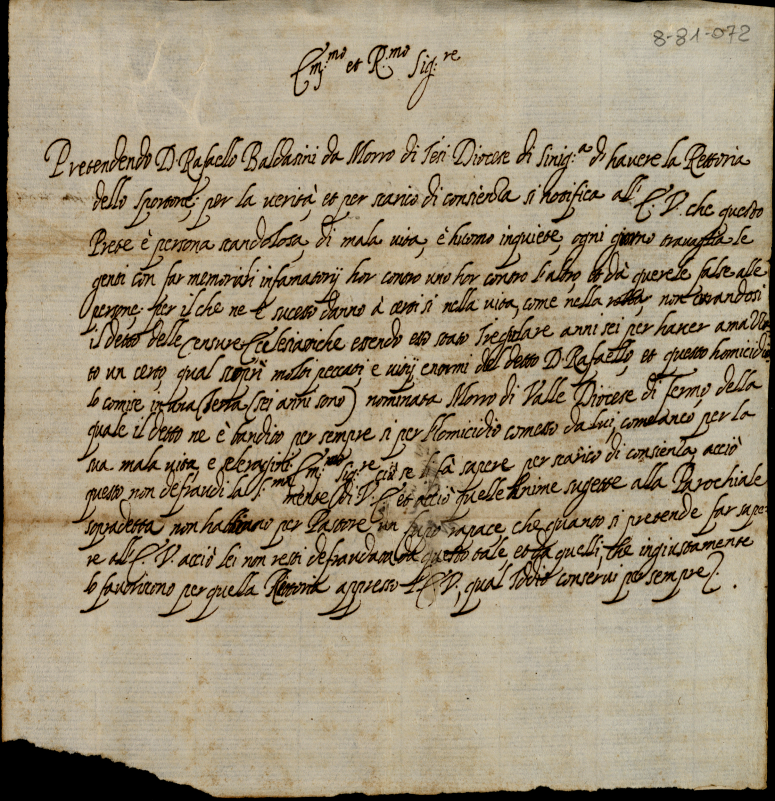 8-81-072
Em.mo et R.mo Sig.re
Pretendendo D. Rafaello Baldasini da Morro di Iesi Diocese di Sinig.a d' havere la Rettoria
dello sportone, per la verità, et per scarico di conscienza si notifica all' E. V. che questo
Prete è persona scandolosa, di mala vita, è huomo inquiete, ogni giorno travaglia le
genti con far memoriali infamatorij hor contro uno hor contro l'altro et dà querele false alle
persone, per il che ne è sucesso danno à certi si nella vita, come nella robba, non curandosi
il detto delle censure Ecclesiastiche essendo esso stato Iregulare anni sei per haver amazza
to un certo qual scoprì molti peccati e vitij enormi del detto D. Rafaello, et questo homicidio
lo comise in una Terra (sei anni sono) nominata Morro di Valle Diocese di fermo della
quale il detto ne è bandito per sempre si per l'homicidio comesso da lui, com'anco per la
sua mala vita, e Em.mo Sig.re ciò se li fà sapere per scarico di conscienza acciò
questo non defraudi la S.ma mente di V. E. et acciò quelle Anime sugette alla Parochiale
sopradetta non habbiano per Pastore un Lupo rapace che quanto si pretende far sape=
re all' E. V. acciò lei non resti defraudata da questo tale, et da quelli, che ingiustamente
lo favoriscono per quella Rettoria appresso l' E. V., qual Iddio conservi per sempre.